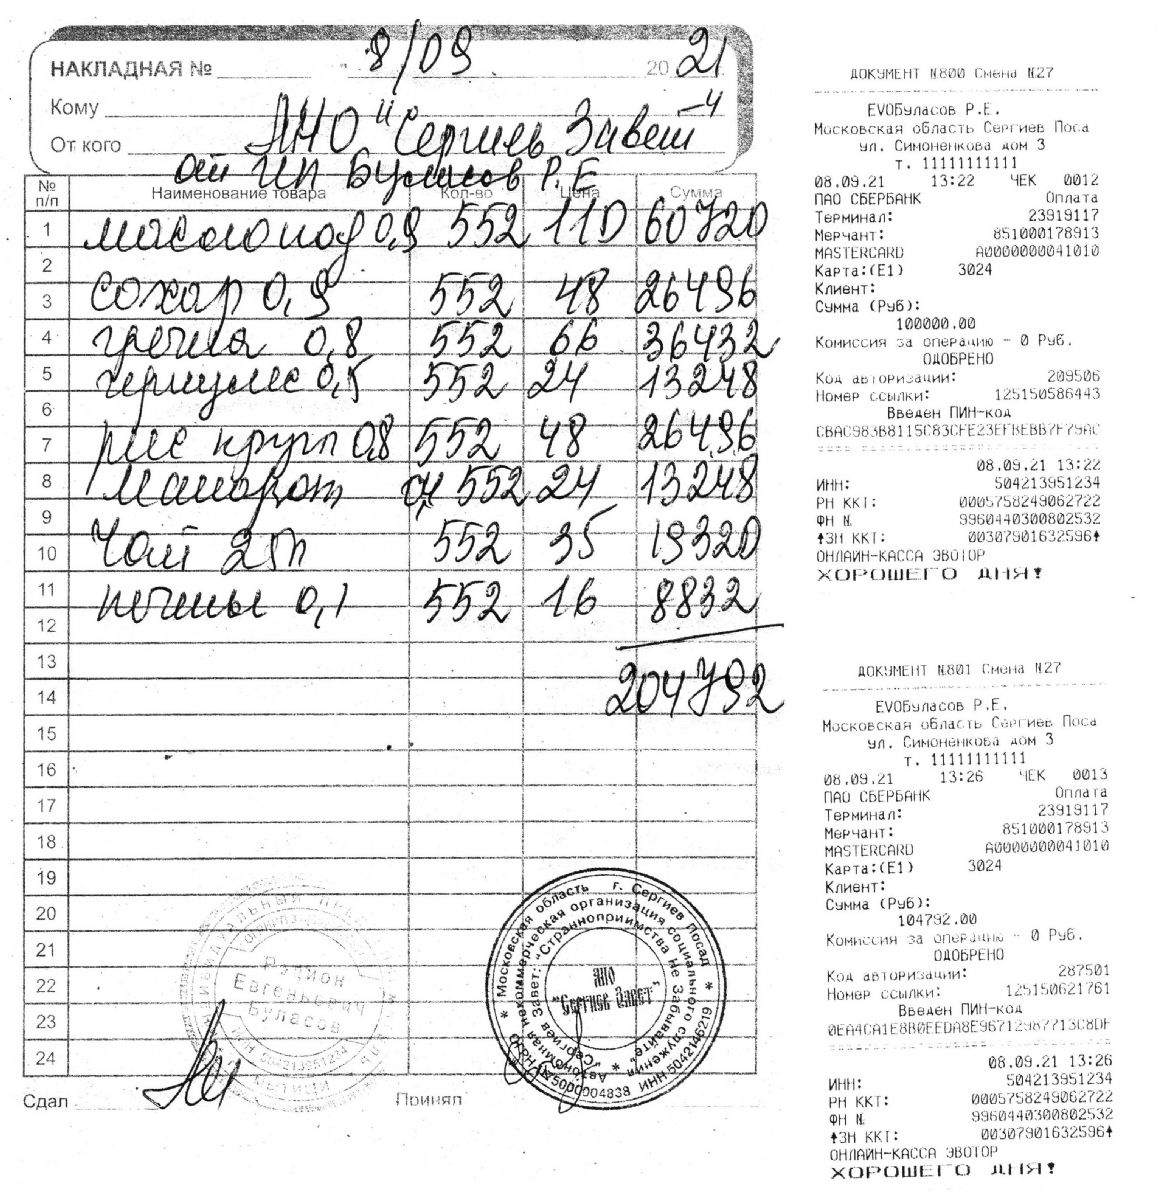 НАКЛАДНАЯ № 8/09 2021
Кому
АНО "Сергиев Завет"
От кого
от ИП Буласов Р.Е
№ п/п Наименование товара Кол-во Цена Сумма
1 масло под 0,9 552 110 60720
2
3 сахар 0,9 552 48 26496
4 гречка 0,8 552 66 36432
5 геркулес 0,5 552 24 13248
6
7 рис кругл 0,8 552 48 26496
8 Макарон 0,4 552 24 13248
9
10 Чай 25п 552 35 19320
11 печенье 0,1 552 16 8832
12
13
14 204792
15
16
17
18
19
20
21
22
23
24
Сдал
Принял
Родион
Евгеньевич
Буласов
* Московская область г. Сергиев Посад *
Автономная некоммерческая организация социального служения
"Сергиев Завет: "Странноприимства Не Забывайте" *
АНО
"Сергиев Завет"
ИНН 5042146219
ДОКУМЕНТ №800 Смена №27
EVOБуласов Р.Е.
Московская область Сергиев Поса
ул. Симоненкова дом 3
т. 11111111111
08.09.21 13:22 ЧЕК 0012
ПАО СБЕРБАНК Оплата
Терминал: 23919117
Мерчант: 851000178913
MASTERCARD A0000000041010
Карта:(E1) 3024
Клиент:
Сумма (Руб):
100000.00
Комиссия за операцию - 0 Руб.
ОДОБРЕНО
Код авторизации: 209506
Номер ссылки: 125150586443
Введен ПИН-код
CBAC983B8115C83CFE23EFBEBB7F79AC
08.09.21 13:22
ИНН: 504213951234
РН ККТ: 0005758249062722
ФН № 9960440300802532
↑ЗН ККТ: 00307901632596↑
ОНЛАЙН-КАССА ЭВОТОР
ХОРОШЕГО ДНЯ!
ДОКУМЕНТ №801 Смена №27
EVOБуласов Р.Е.
Московская область Сергиев Поса
ул. Симоненкова дом 3
т. 11111111111
08.09.21 13:26 ЧЕК 0013
ПАО СБЕРБАНК Оплата
Терминал: 23919117
Мерчант: 851000178913
MASTERCARD A0000000041010
Карта:(E1) 3024
Клиент:
Сумма (Руб):
104792.00
Комиссия за операцию - 0 Руб.
ОДОБРЕНО
Код авторизации: 287501
Номер ссылки: 125150621761
Введен ПИН-код
0EA4CA1E8B0EEDA8E96712987713C8DF
08.09.21 13:26
ИНН: 504213951234
РН ККТ: 0005758249062722
ФН № 9960440300802532
↑ЗН ККТ: 00307901632596↑
ОНЛАЙН-КАССА ЭВОТОР
ХОРОШЕГО ДНЯ!